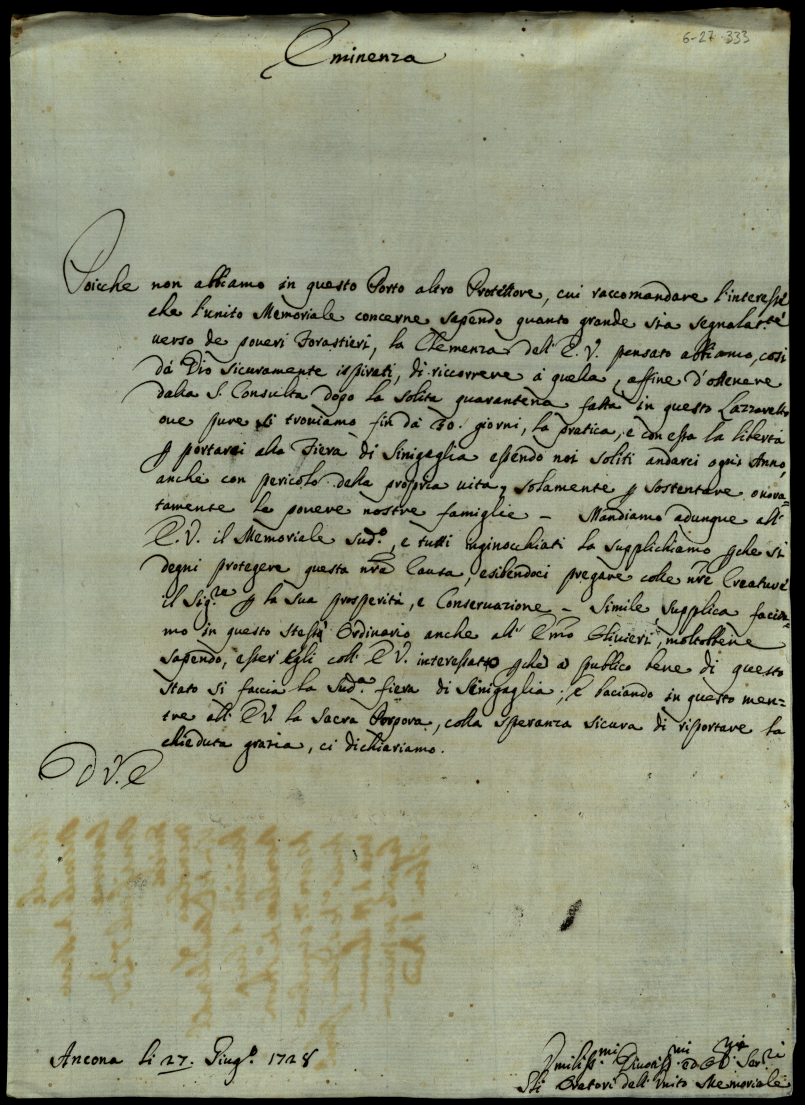 6-27-333
Eminenza
Poicche non abbiamo in questo Porto altro Protettore, cui raccomandare l'interesse
che l'unito Memoriale concerne sapendo quanto grande sia segnalat.te
verso de poveri Forastieri, la Clemenza dell' E. V. pensato abbiamo, così
da Dio sicuramente ispirati, di ricorrere à quella, affine d'ottenere
dalla S. Consulta dopo la solita quarantena fatta in questo Lazzaretto
ove pure si troviamo fin da 30. giorni, la pratica, e con essa la libertà
p portarci alla Fiera di Sinigaglia essendo noi soliti andarci ogni Anno,
anche con pericolo della propria vita, solamente p sostentare onora-
tamente le povere nostre famiglie – Mandiamo adunque all'
E. V. il Memoriale sud.o, e tutti inginocchiati la supplichiamo pche si
degni protegere questa nra Causa, esibendoci pregare colle nre Creature
il Sig.re p la sua prosperità, e Conservazione – Simile supplica faccia-
mo in questo stesso Ordinario anche all' Emo Olivieri, moltobene
sapendo, esser Egli coll' E V. interessato pche a publico bene di questo
stato si faccia la sud.a fiera di Sinigaglia; e baciando in questo men=
tre all' E V. la Sacra Porpora, colla speranza sicura di riportare la
chieduta grazia, ci dichiariamo.
D V. E
Ancona li 27. Giug.o 1728
Umiliss.mi Divotiss.mi ed Serri
Gli Oratori dell' Unito Memoriale